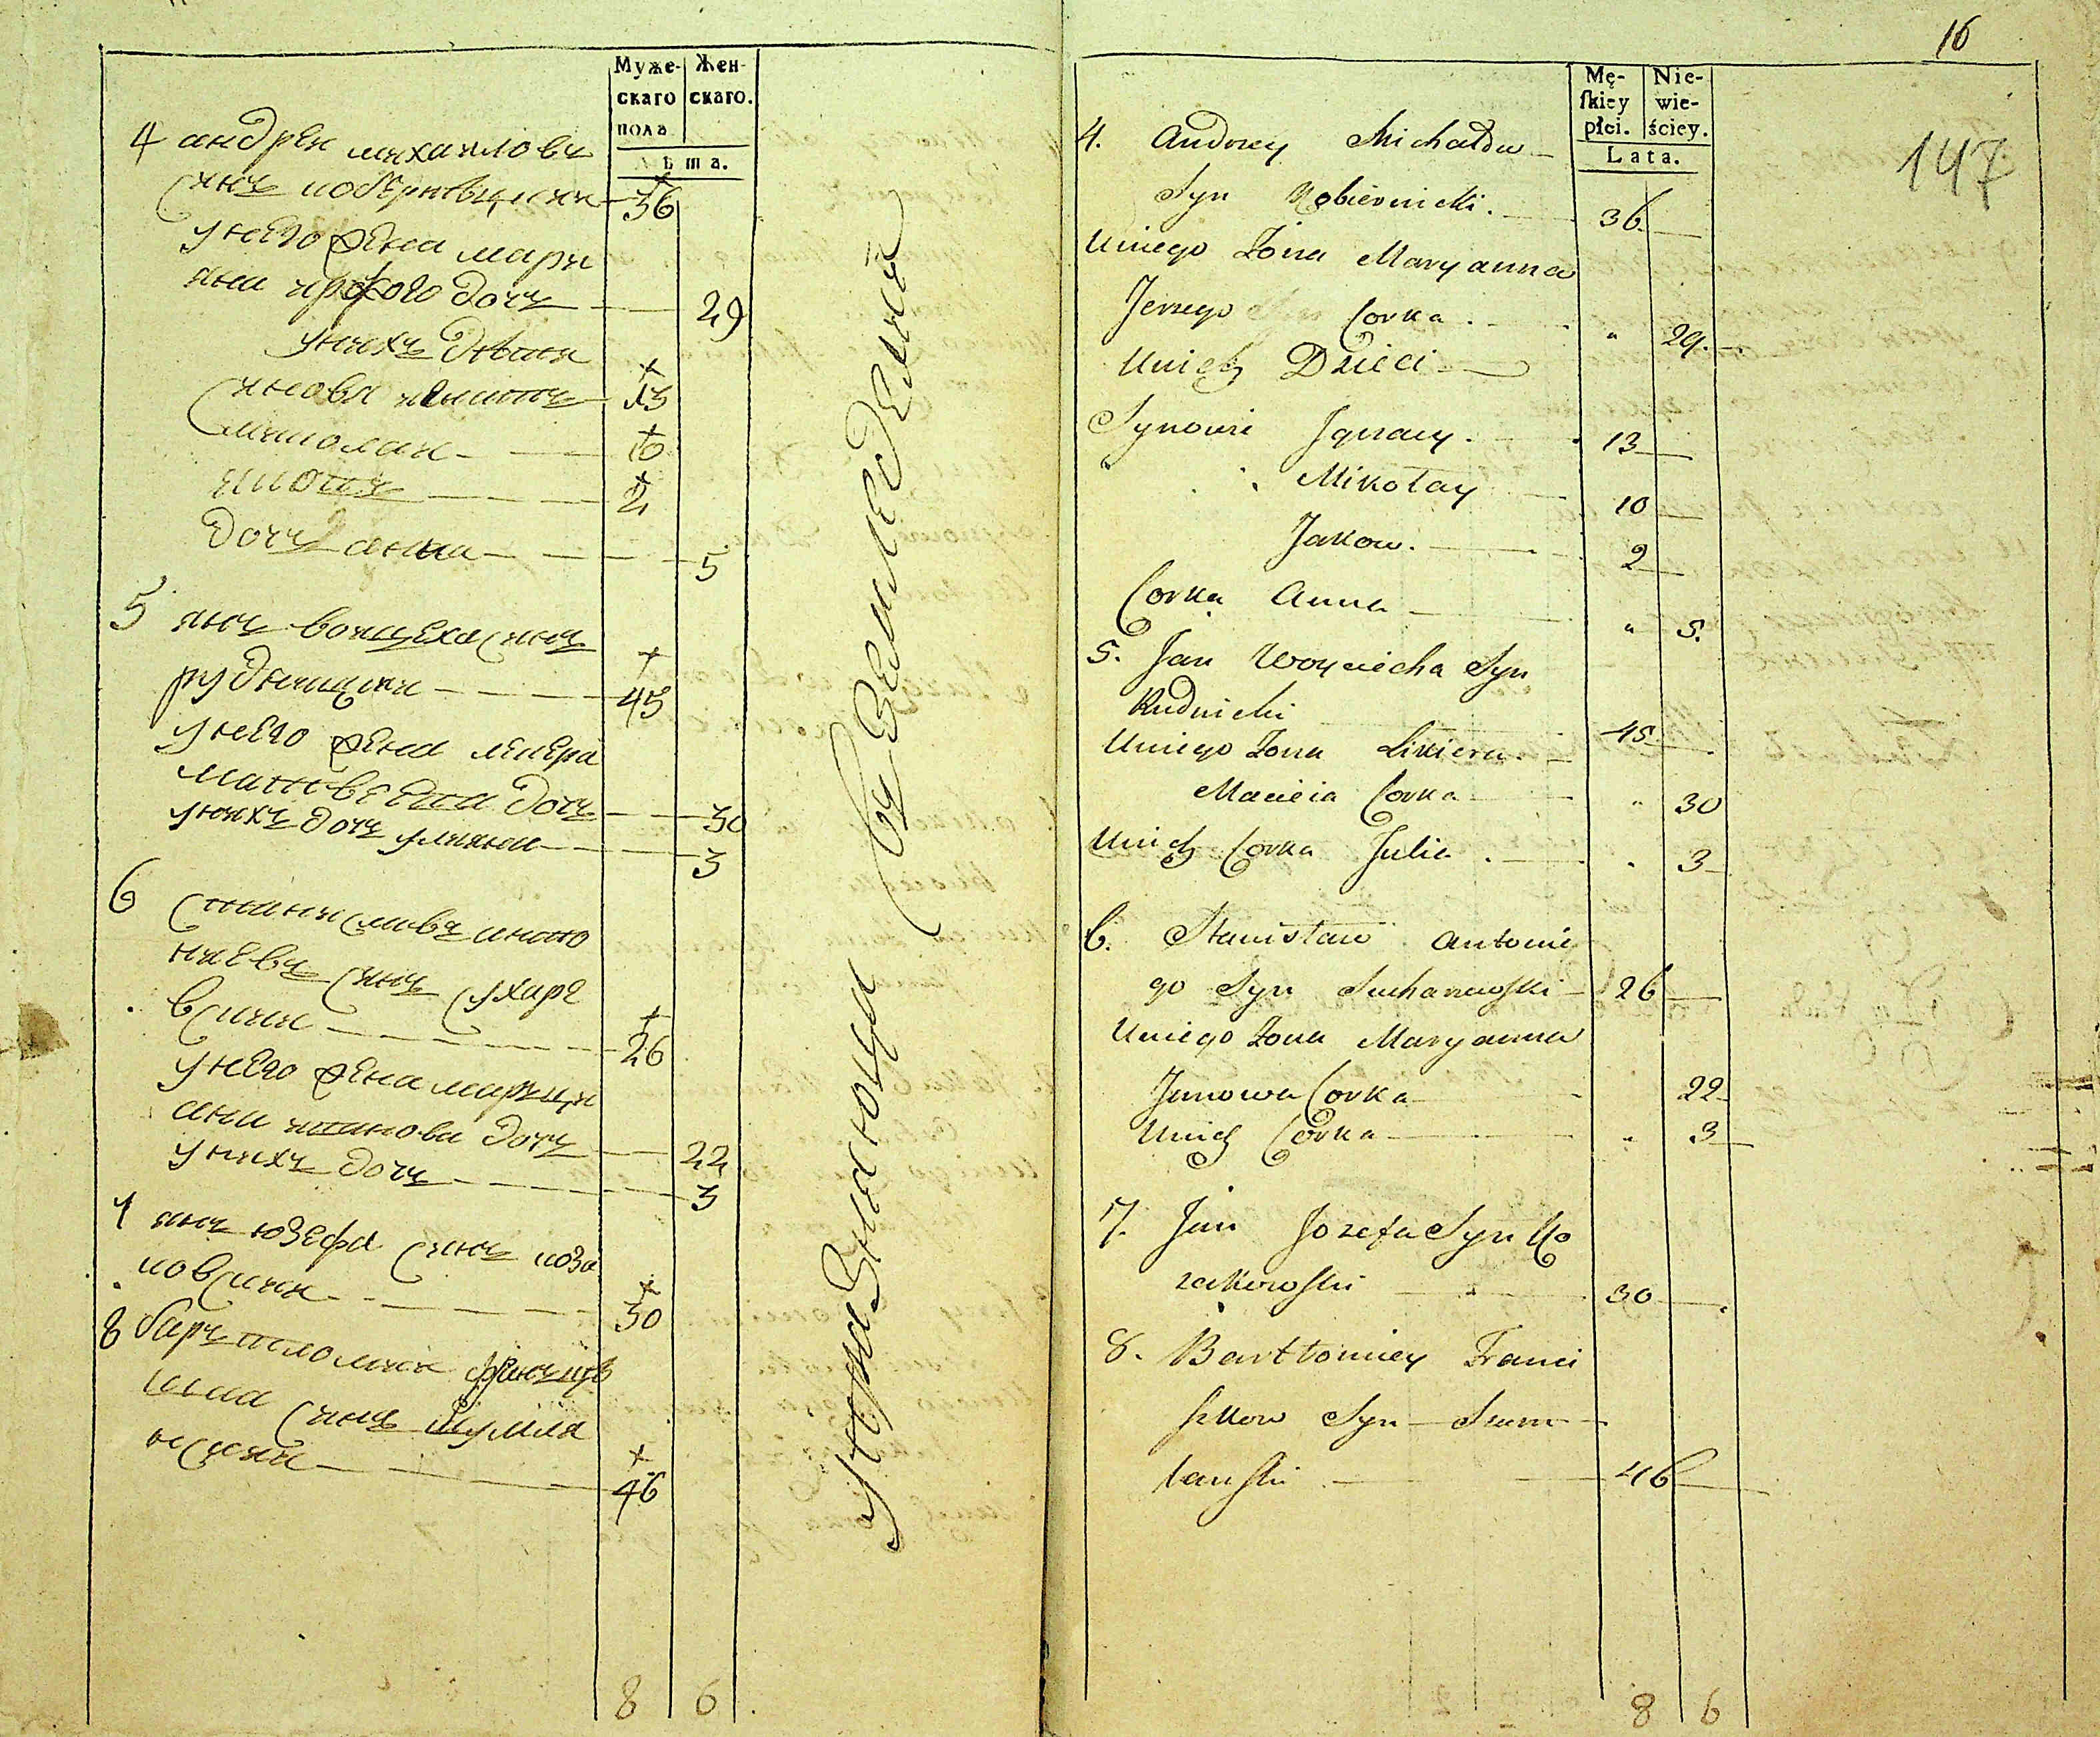 Муже- Жен-
скаго скаго.
пола
Лѣта.
4 андрей михайловъ
сынъ коберницкий 36
у него жена мари
яна ирского дочъ 29
у нихъ дѣти
сынова игнатъ 13
миколай 10
якопъ 2
дочъ анна 5
5 янъ войцеха сынъ
рудницкий 45
у него жена
матвеева дочъ 30
у нихъ дочъ улияна 3
6 станиславъ анто
ниевъ сынъ сухаре
вский 26
у него жена марци
яна янова дочъ 22
у нихъ дочъ 3
7 янъ юзефа сынъ коза
ковский 30
8 бартломий францѣ
шка сынъ шумля
нский 46
8 6
16
147
Mę- Nie-
ſkiey wie-
płci. ściey.
Lata.
4. Andrzey Michałów
Syn Kobiernicki. 36
Uniego Żona Maryanna
Jerzego Corka. " 29.
Unich Dzieci
Synowie Jgnacy. 13
Mikołay 10
Jakow. 2
Corka Anna " 5.
5. Jan Woyciecha Syn
Rudnicki 45
Uniego Żona
Macieia Corka " 30
Unich Corka Julia. " 3
6. Stanisław Antonie
go Syn Sucharewski 26
Uniego Żona Maryanna
Janowa Corka 22
Unich Corka " 3
7. Jan Jozefa Syn Ko
zakowski 30
8. Bartłomiey Franci
szkow Syn Szum
lanſki 46
8 6